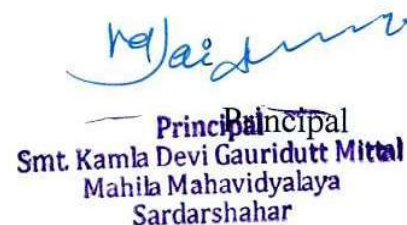 Principal Principal
Smt. Kamla Devi Gauridutt Mittal
Mahila Mahavidyalaya
Sardarshahar